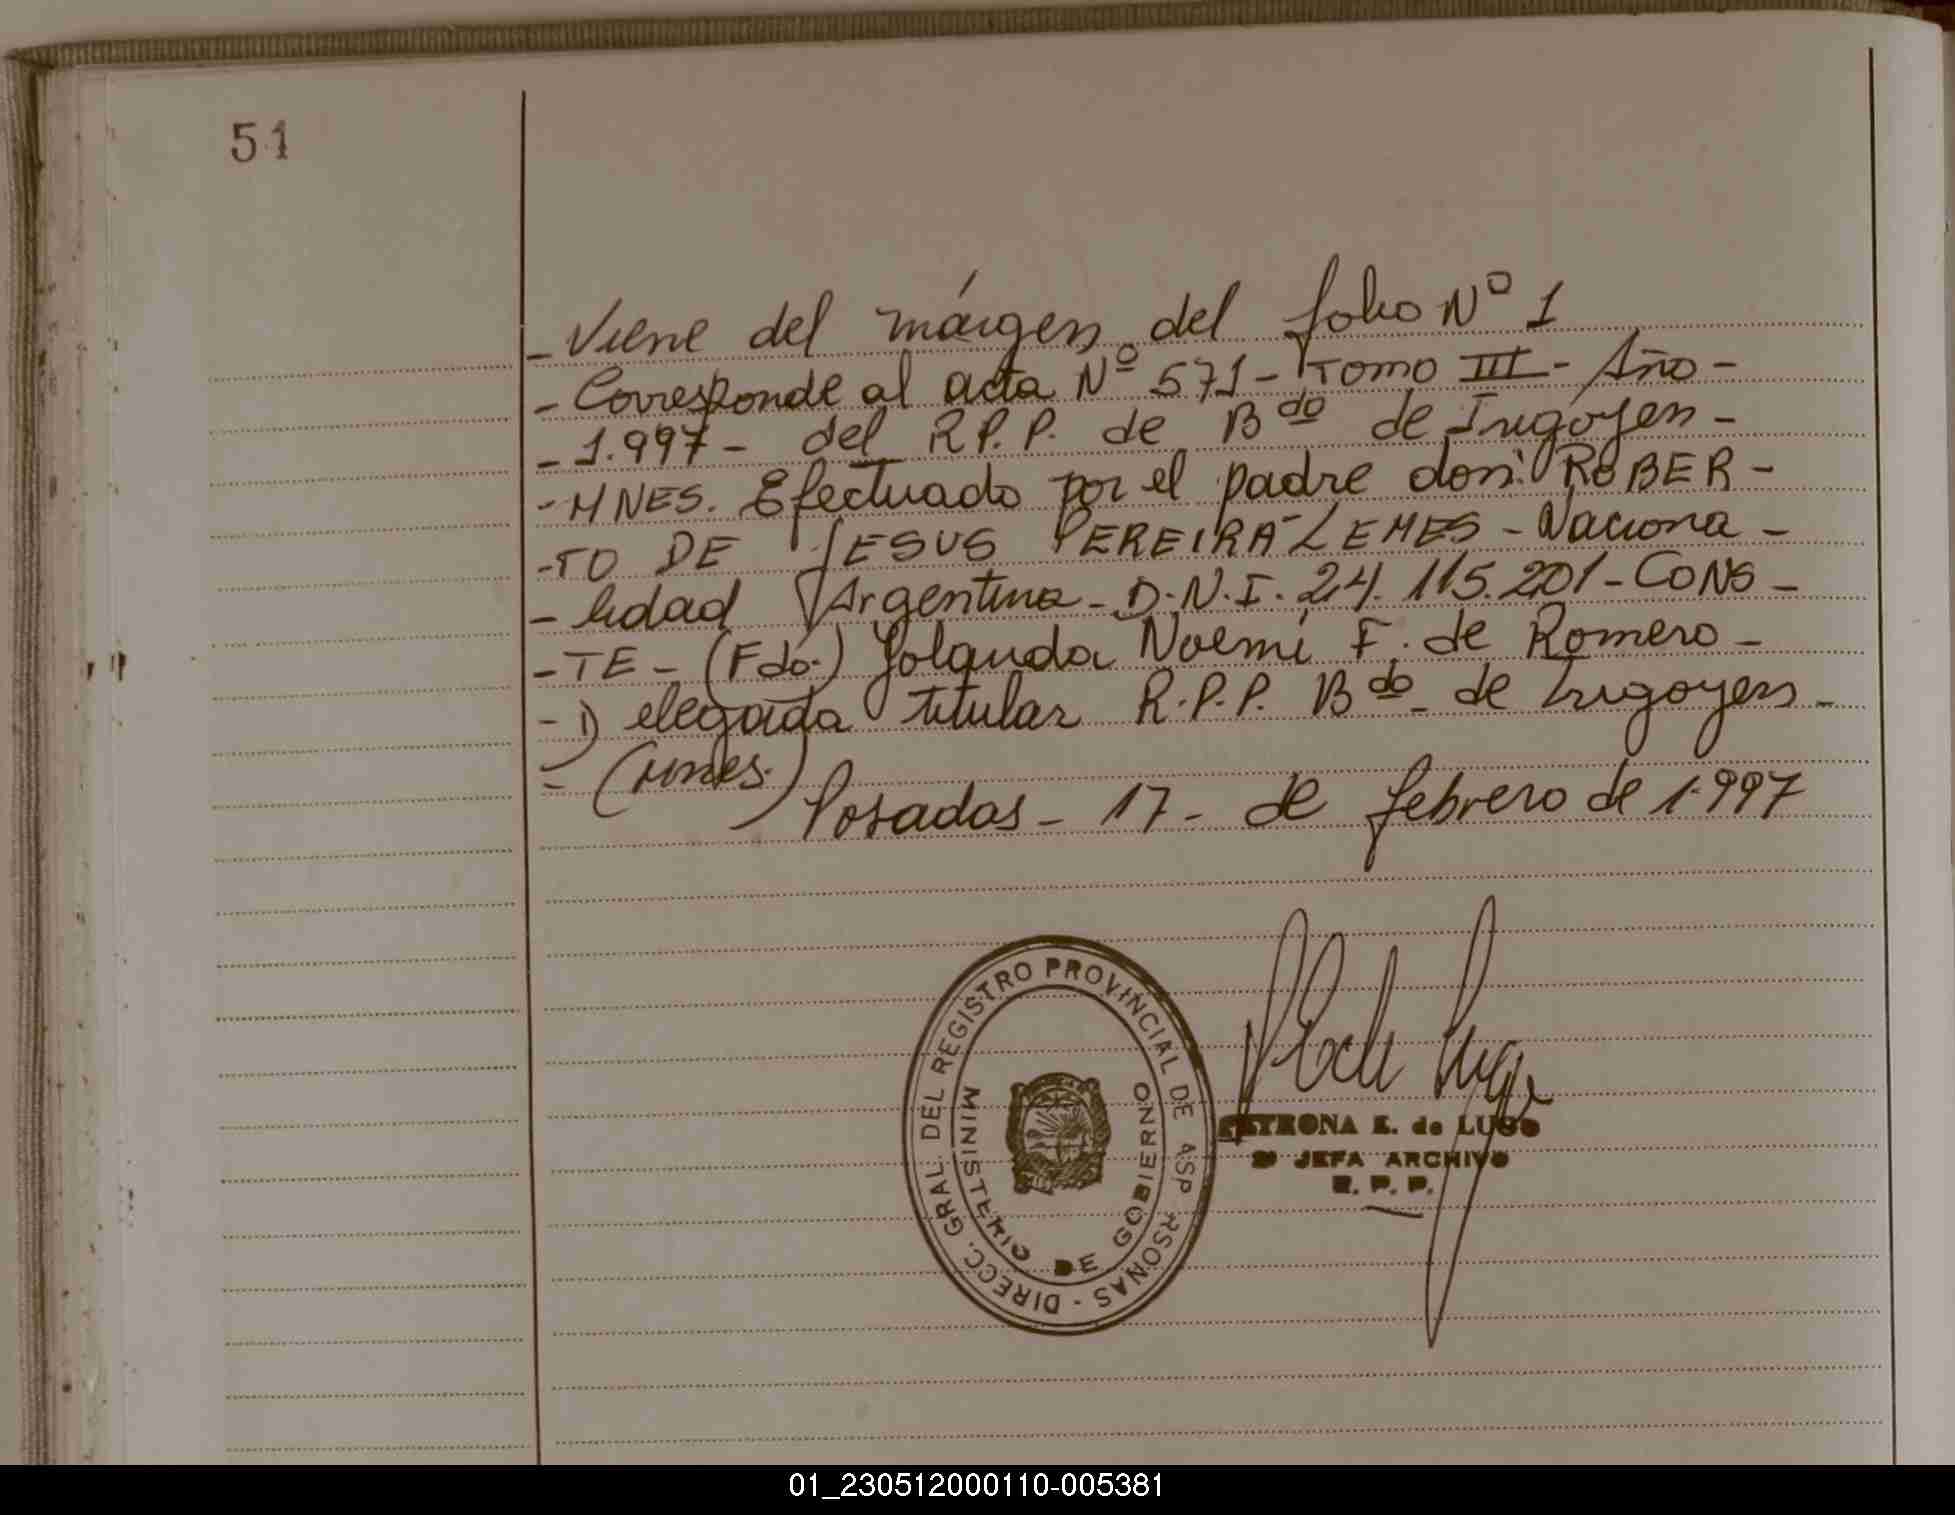 51
- Viene del márgen del folio Nº 1
- Corresponde al acta Nº 571 - Tomo III - Año -
- 1.997 - del R.P.P. de Bdo de Irigoyen -
- MNES. Efectuado por el padre don: ROBER -
- TO DE JESUS PEREIRA - LEMES - Naciona -
- lidad Argentina - D.N.I. 24.115.201 - CONS -
- TE - (Fdo.) Yolanda Noemi F. de Romero -
- Delegada titular R.P.P. Bdo de Irigoyen -
- (Mnes.)
Posadas - 17 - de febrero de 1.997
DIRECC. GRAL. DEL REGISTRO PROVINCIAL DE LAS PERSONAS -
MINISTERIO DE GOBIERNO
PETRONA E. de LUGO
2º JEFA ARCHIVO
R. P. P.
01_230512000110-005381